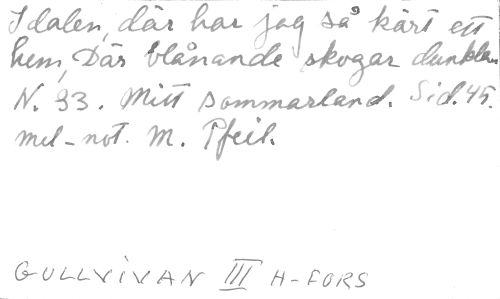 I dalen, där har jag så kärt ett
hem, Där blånande skogar dunkla.
N. 33. Mitt sommarland. Sid. 45.
mel-not. M. Pfeil.
GULLVIVAN III H-FORS